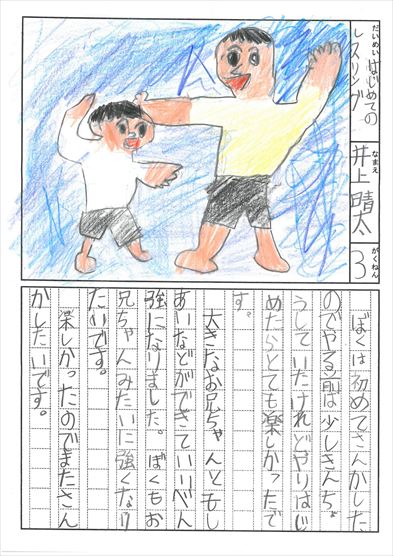 だいめい
はじめての
レスリング
なまえ
井上晴太
がくねん
3
ぼくは初めてさんかした
のでやる前は少しきんちょ
うしていたけれどやりはじ
めたらとても楽しかったで
す。
大きなお兄ちゃんともし
あいなどができていいべん
強になりました。ぼくもお
兄ちゃんみたいに強くなり
たいです。
楽しかったのでまたさん
かしたいです。